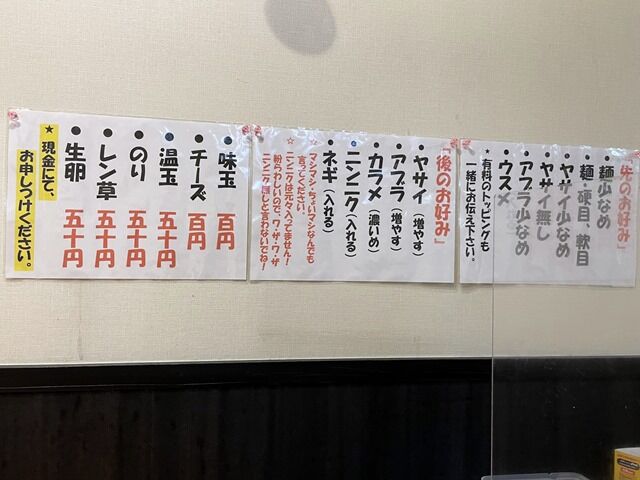 「先のお好み」
●麺少なめ
●麺・硬目、軟目
●ヤサイ少なめ
●ヤサイ無し
●アブラ少なめ
●ウスメ
★有料のトッピングも
一緒にお伝え下さい。
「後のお好み」
●ヤサイ(増やす)
●アブラ(増やす)
●カラメ(濃いめ)
●ニンニク(入れる)
●ネギ(入れる)
☆マシマシ・ちょいマシなんでも
言ってください。
☆ニンニクは元々入ってません!
紛らわしいので、ワ・ザ・ワ・ザ
ニンニク無しと言わないでね!
●味玉 百円
●チーズ 百円
●温玉 五十円
●のり 五十円
●レン草 五十円
●生卵 五十円
★現金にて、
お申しつけください。